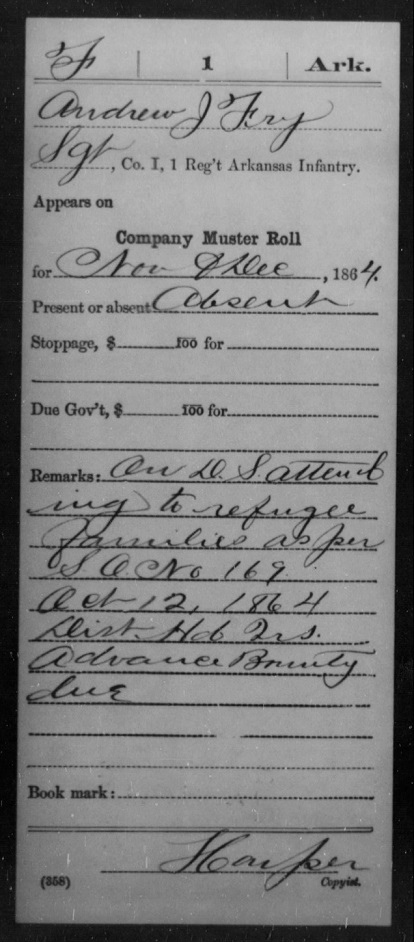 F | 1 | Ark.
Andrew J Fry
Sgt, Co. I, 1 Reg't Arkansas Infantry.
Appears on
Company Muster Roll
for Nov & Dec, 1864.
Present or absent Absent
Stoppage, $ 100 for
Due Gov't, $ 100 for
Remarks: On D. S. attend
ing to refugee
families as per
S O No 169
Oct 12, 1864
Dist Hd Qrs.
Advance Bounty
due
Book mark:
Harper
(358) Copyist.